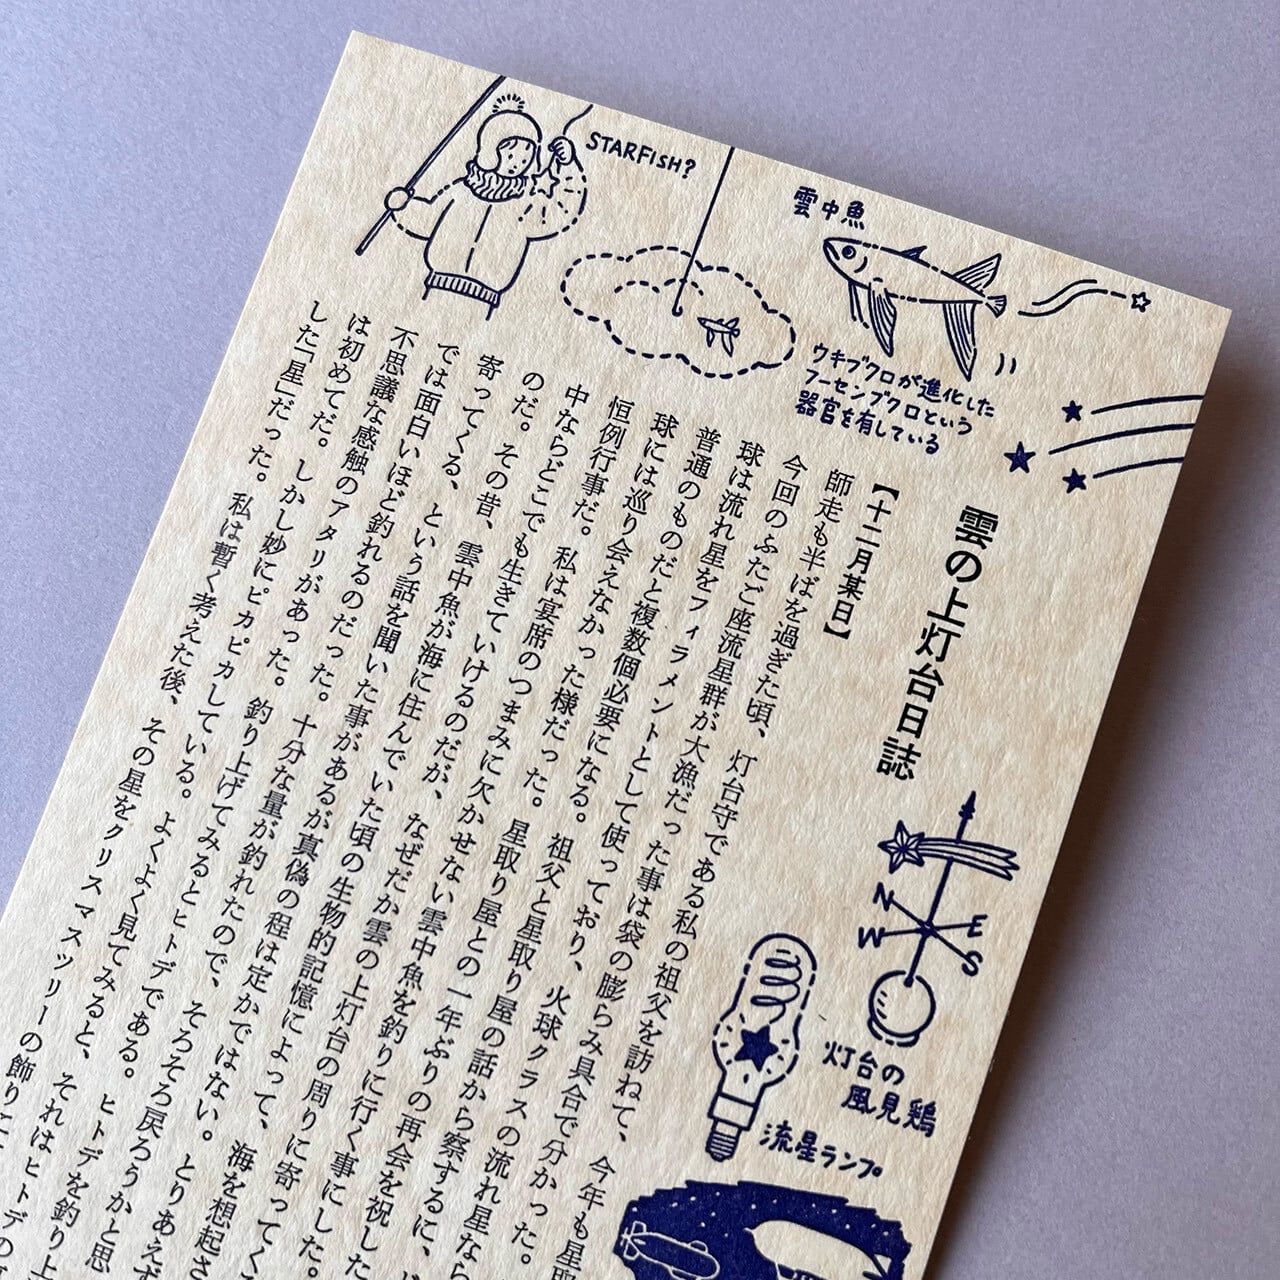 STARFISH?
雲中魚
ウキブクロが進化した
フーセンブクロという
器官を有している
雲の上灯台日誌
【十二月某日】
師走も半ばを過ぎた頃、灯台守である私の祖父を訪ねて、今年も星取
今回のふたご座流星群が大漁だった事は袋の膨らみ具合で分かった。
球は流れ星をフィラメントとして使っており、火球クラスの流れ星なら
普通のものだと複数個必要になる。祖父と星取り屋の話から察するに、
球には巡り会えなかった様だった。星取り屋との一年ぶりの再会を祝した
恒例行事だ。私は宴席のつまみに欠かせない雲中魚を釣りに行く事にした。
中ならどこでも生きていけるのだが、なぜだか雲の上灯台の周りに寄ってく
のだ。その昔、雲中魚が海に住んでいた頃の生物的記憶によって、海を想起さ
寄ってくる、という話を聞いた事があるが真偽の程は定かではない。とりあえず
では面白いほど釣れるのだった。十分な量が釣れたので、そろそろ戻ろうかと思
不思議な感触のアタリがあった。釣り上げてみるとヒトデである。ヒトデを釣り上
は初めてだ。しかし妙にピカピカしている。よくよく見てみると、それはヒトデの
した「星」だった。私は暫く考えた後、その星をクリスマスツリーの飾りに
N
E
W
S
灯台の
風見鶏
流星ランプ